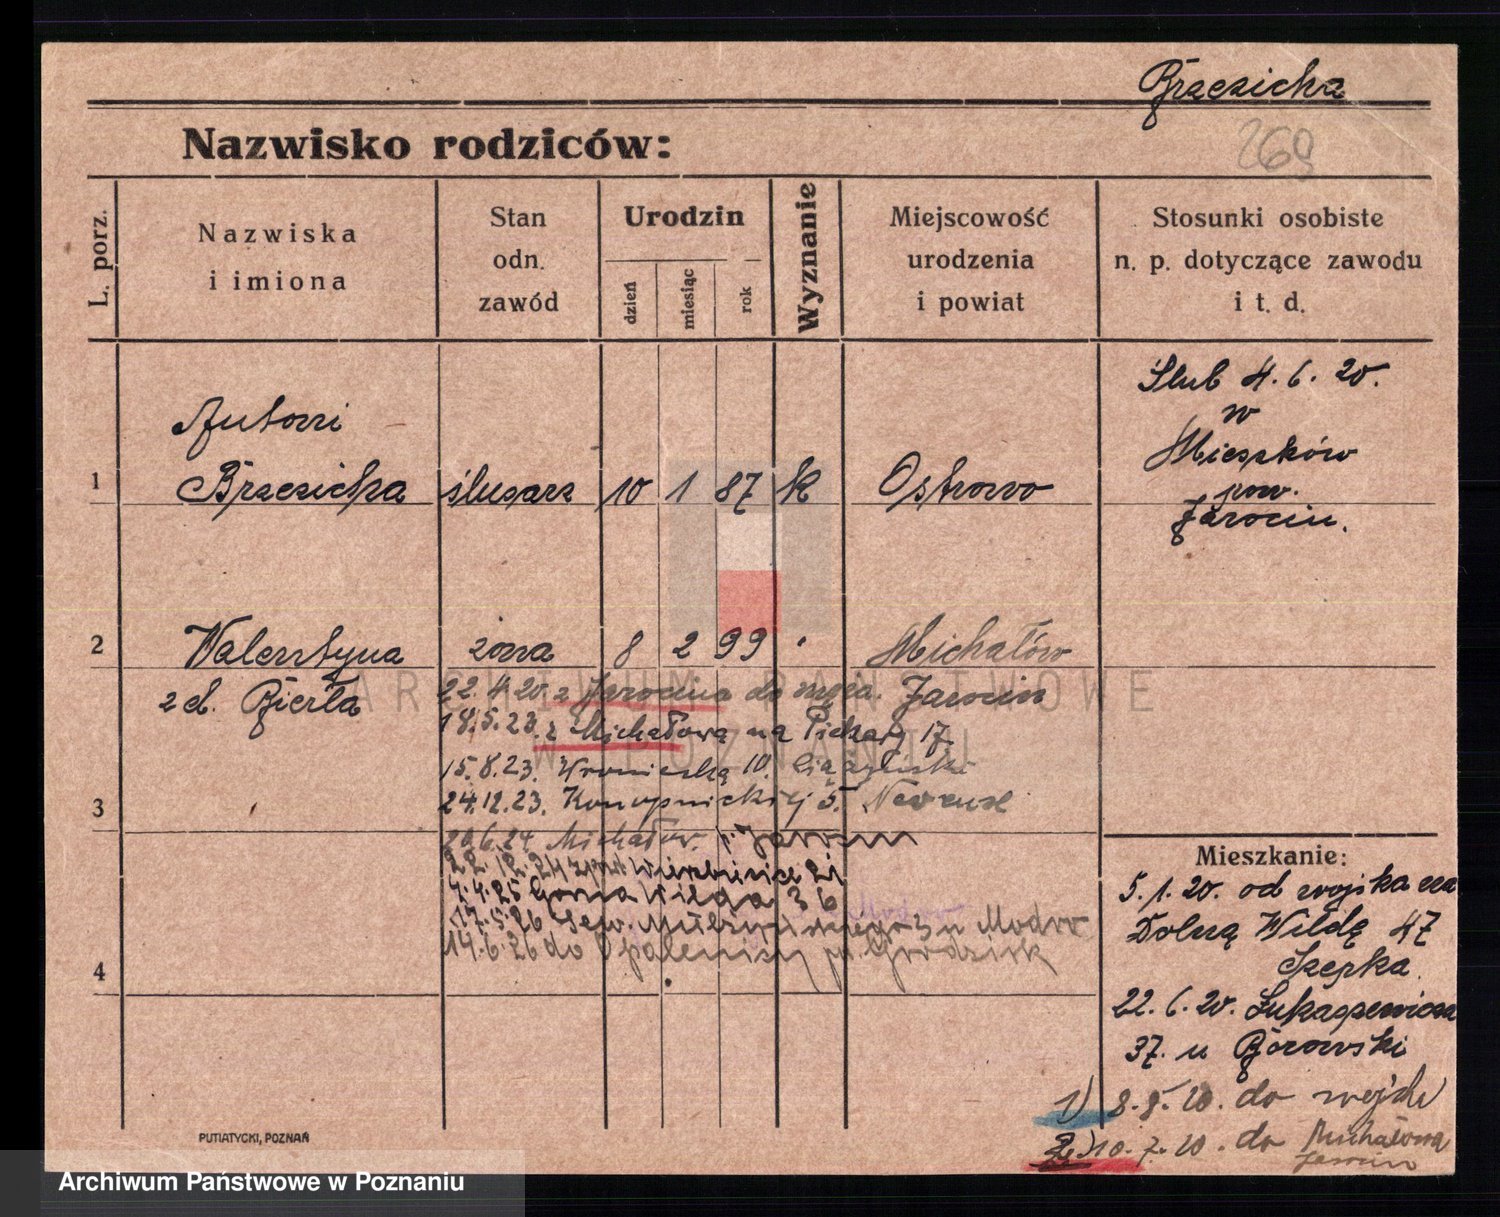 Brzezicha
269
Nazwisko rodziców:
L. porz.
Nazwiska
i imiona
Stan
odn.
zawód
Urodzin
dzień
miesiąc
rok
Wyznanie
Miejscowość
urodzenia
i powiat
Stosunki osobiste
n. p. dotyczące zawodu
i t. d.
Ślub 4. 6. 20.
w
Mieszków
pow.
Jarocin.
Antoni
1 Brzezicha ślusarz 10 1 87 k Ostrowo
2 Walentyna żona 8 2 99 Michałów
z d. Bierła
22.4.20. z Jarocina do męża. Jarocin
18.5.23. z Michałowa na Piekary 17.
15.8.23. Wroniecką 10.
3 24.12.23. Konopnickiej 5.
20.6.24 Michałów. p. Jarocin
Wierzbięcice 21
4.4.25 Górna Wilda 36
17.5.26 Sew. Mielżyńskiego 3 u Modro
4 14.6.26 do Opalenicy p. Grodzisk
Mieszkanie:
5.1.20. od wojska na
Dolną Wildę 47
Szepka.
22.6.20. Łukaszewicza
37. u Borowski
1) 8.8.20. do wojska
2.) 10.7.20. do Michałowa
Jarocin
PUTIATYCKI, POZNAŃ
ARCHIWUM PAŃSTWOWE
W POZNANIU
Archiwum Państwowe w Poznaniu